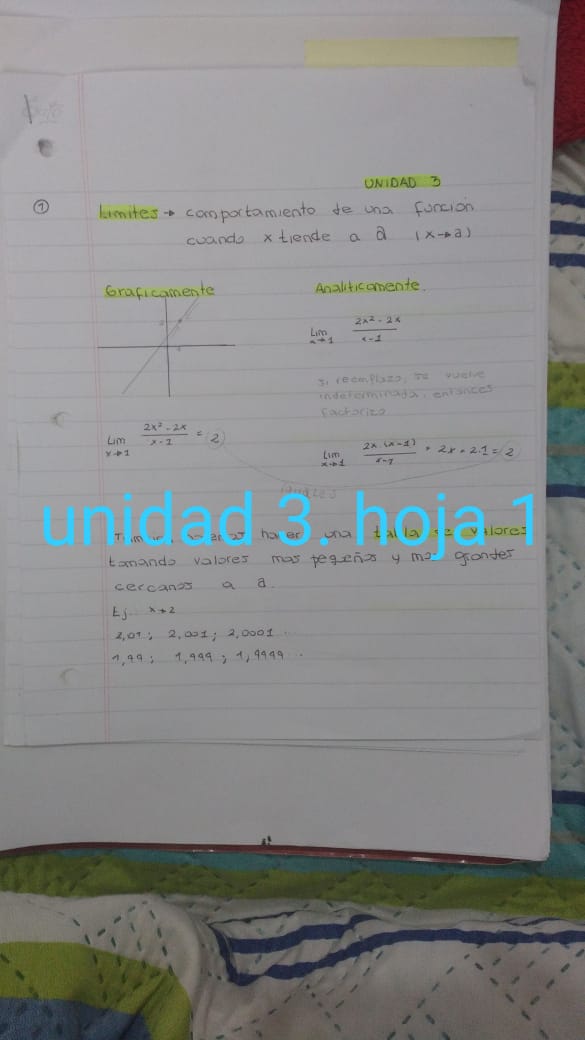 UNIDAD 3
① Limites → comportamiento de una función
cuando x tiende a a (x→a)
Graficamente
Analiticamente.
Lim x→1 2x² - 2x / x-1
si reemplazo, se vuelve
indeterminada, entonces
factorizo
Lim x→1 2x² - 2x / x-1 = 2
Lim x→1 2x (x-1) / x-1 = 2x = 2.1 = 2
iguales
unidad 3. hoja 1
hacer una tabla de valores
tomando valores mas pequeños y mas grandes
cercanos a a.
Ej. x→2
2,01; 2,001; 2,0001...
1,99; 1,999; 1,9999...